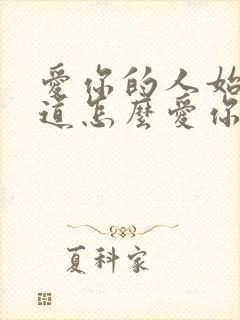 愛你的人始
道怎麼愛你
夏科家